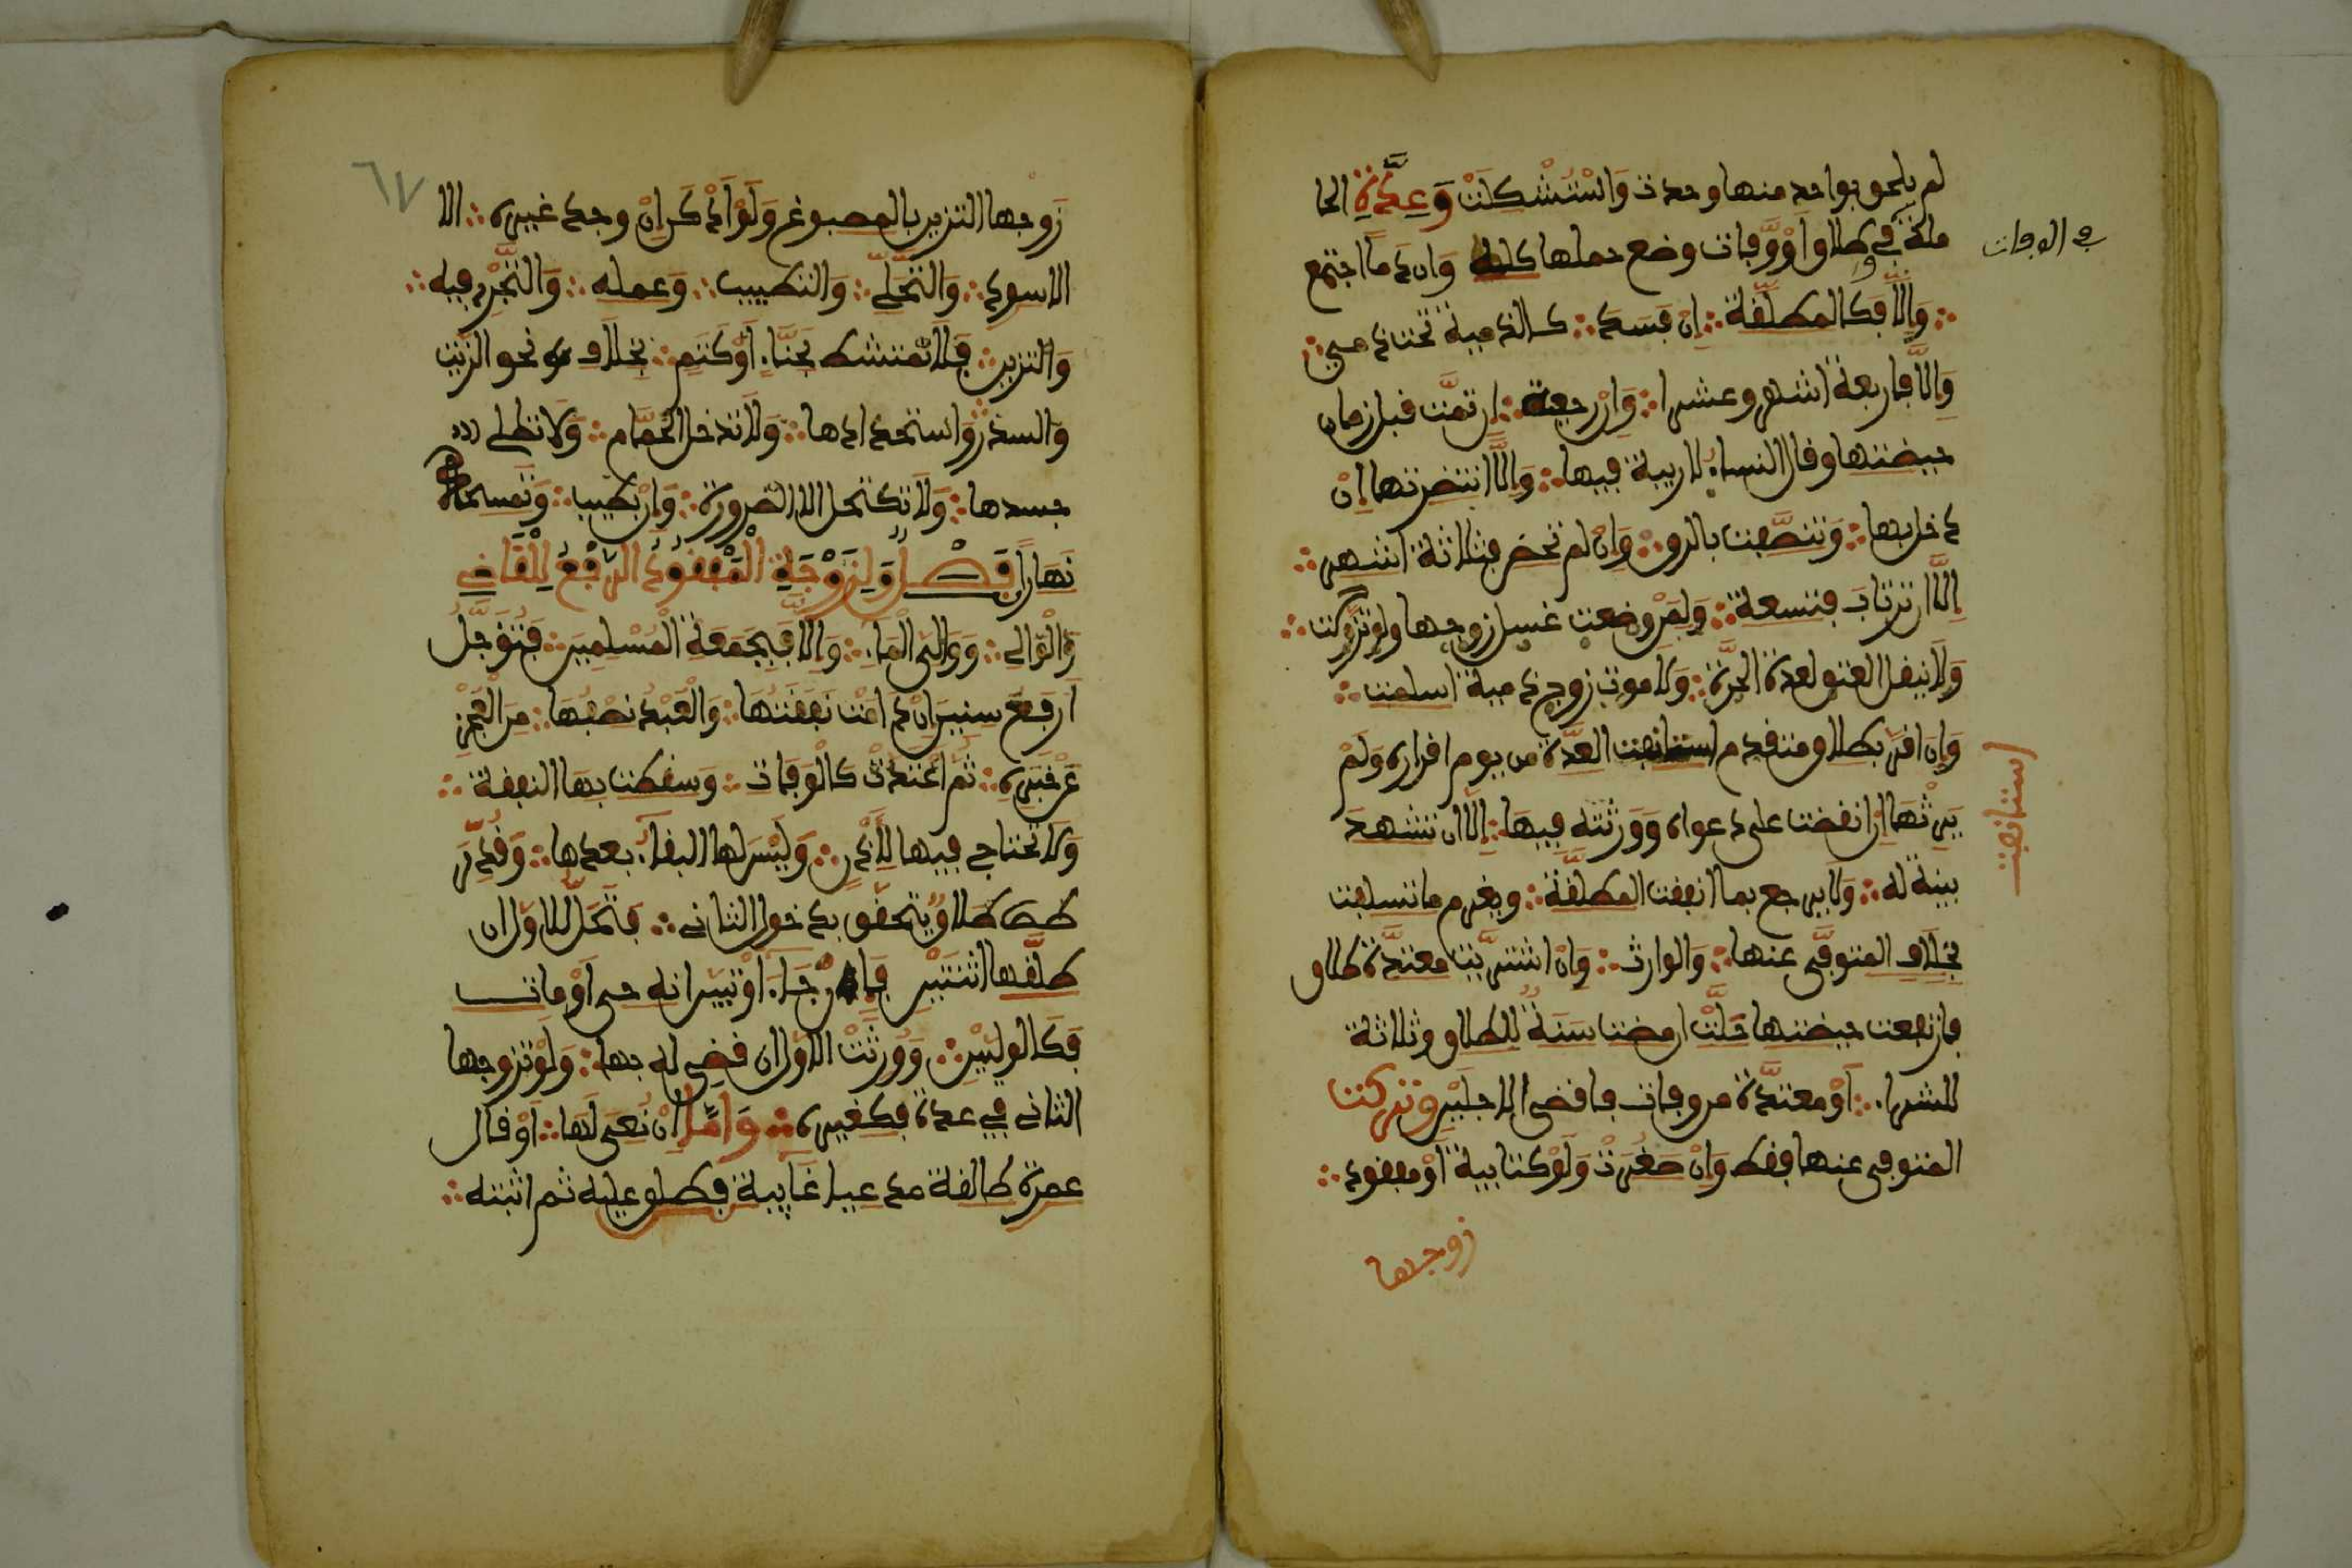 لم يلحق بواحد منها وحدت وَاسْتُشْكِلَتْ وَعِدَّةُ الحا
مل في طلاق أَوْ وَفات وضع حملها كله وَان دما اجتمع
في الوفات
وَإِلَّا فكالمطلّقة إن فسد كالذمية تحت ذمي
وَإِلَّا فأربعة أشهر وعشرا وَإن رجعية إن تمّت قبل زمان
حيضتها وقال النساء لا ريبة فيها وَإِلَّا انتظرتها إن
دخل بها وَتنصّفت بالرق وَإن لم تحض فثلاثة أشهر
إلّا أن ترتاب فتسعة وَلمن وضعت غسل زوجها ولو تزوجت
وَلا ينقل العتق لعدة الحرّة وَلا موت زوج ذمية أسلمت
وَإن أقر بطلاق متقدم استأنفت العدّة من يوم إقراره وَلَمْ
استأنفت
يَرِثْهَا إن انقضت على دعواه وَوَرِثَتْهُ فِيهَا إلّا أن تشهد
بينة له وَلا يرجع بما أنفقت المطلّقة ويغرم ما تسلفت
بخلاف المتوفّى عنها وَالوارث وَإن اشتُريت معتدّة طلاق
فارتفعت حيضتها حلّت إن مضت سنة للطلاق وثلاثة
للشراء أَوْ معتدّة من وفات فأقصى الأجلين وتركت
المتوفى عنها فقط وَإن صغرت وَلَوْ كتابية أَوْ مفقود
زوجها
٦٧
زوجها التزين بالمصبوغ وَلَوْ أدكن إن وجد غيره إلا
الأسود وَالتَّحَلِّي وَالتطييب وَعمله وَالتَّجْرَ فيه
وَالتزين فَلَا تمتشط بحنّاء أَوْ كتم بخلاف نحو الزيت
وَالسدر وَاستحدادها وَلا تدخل الحمّام وَلا تطلي
جسدها وَلا تكتحل إلا لضرورة وَإن بطيب وَتمسحه
نَهَارًا فَصْلٌ وَلِزَوْجَةِ الْمَفْقُودِ الرَّفْعُ لِلْقَاضِي
وَالْوَالِي وَوَالِي الْمَاءِ وَإِلَّا فَلِجَمَاعَةِ الْمُسْلِمِينَ فَيُؤَجَّلُ
أربع سنين إن دامت نفقتها وَالْعَبْدُ نصفها من العجز
عن خبره ثم اعتدّت كالوفات وَسقطت بها النفقة
وَلا تحتاج فيها لإذن وَلَيْسَ لها البقاء بعدها وَقُدِّرَ
طلاق يتحقق بدخول الثاني فتحلّ للأول إن
طلّقها اثنتين فإن جاء أَوْ تبين أنه حي أَوْ مات
فكالوليين وَوَرِثَتْ الأول إن قضي له بها وَلَوْ تزوجها
الثاني في عدة فكغيره وَأَمَّا إن نُعِيَ لها أَوْ قال
عمرة طالقة مدعيا غائبة فطلق عليه ثم أثبته